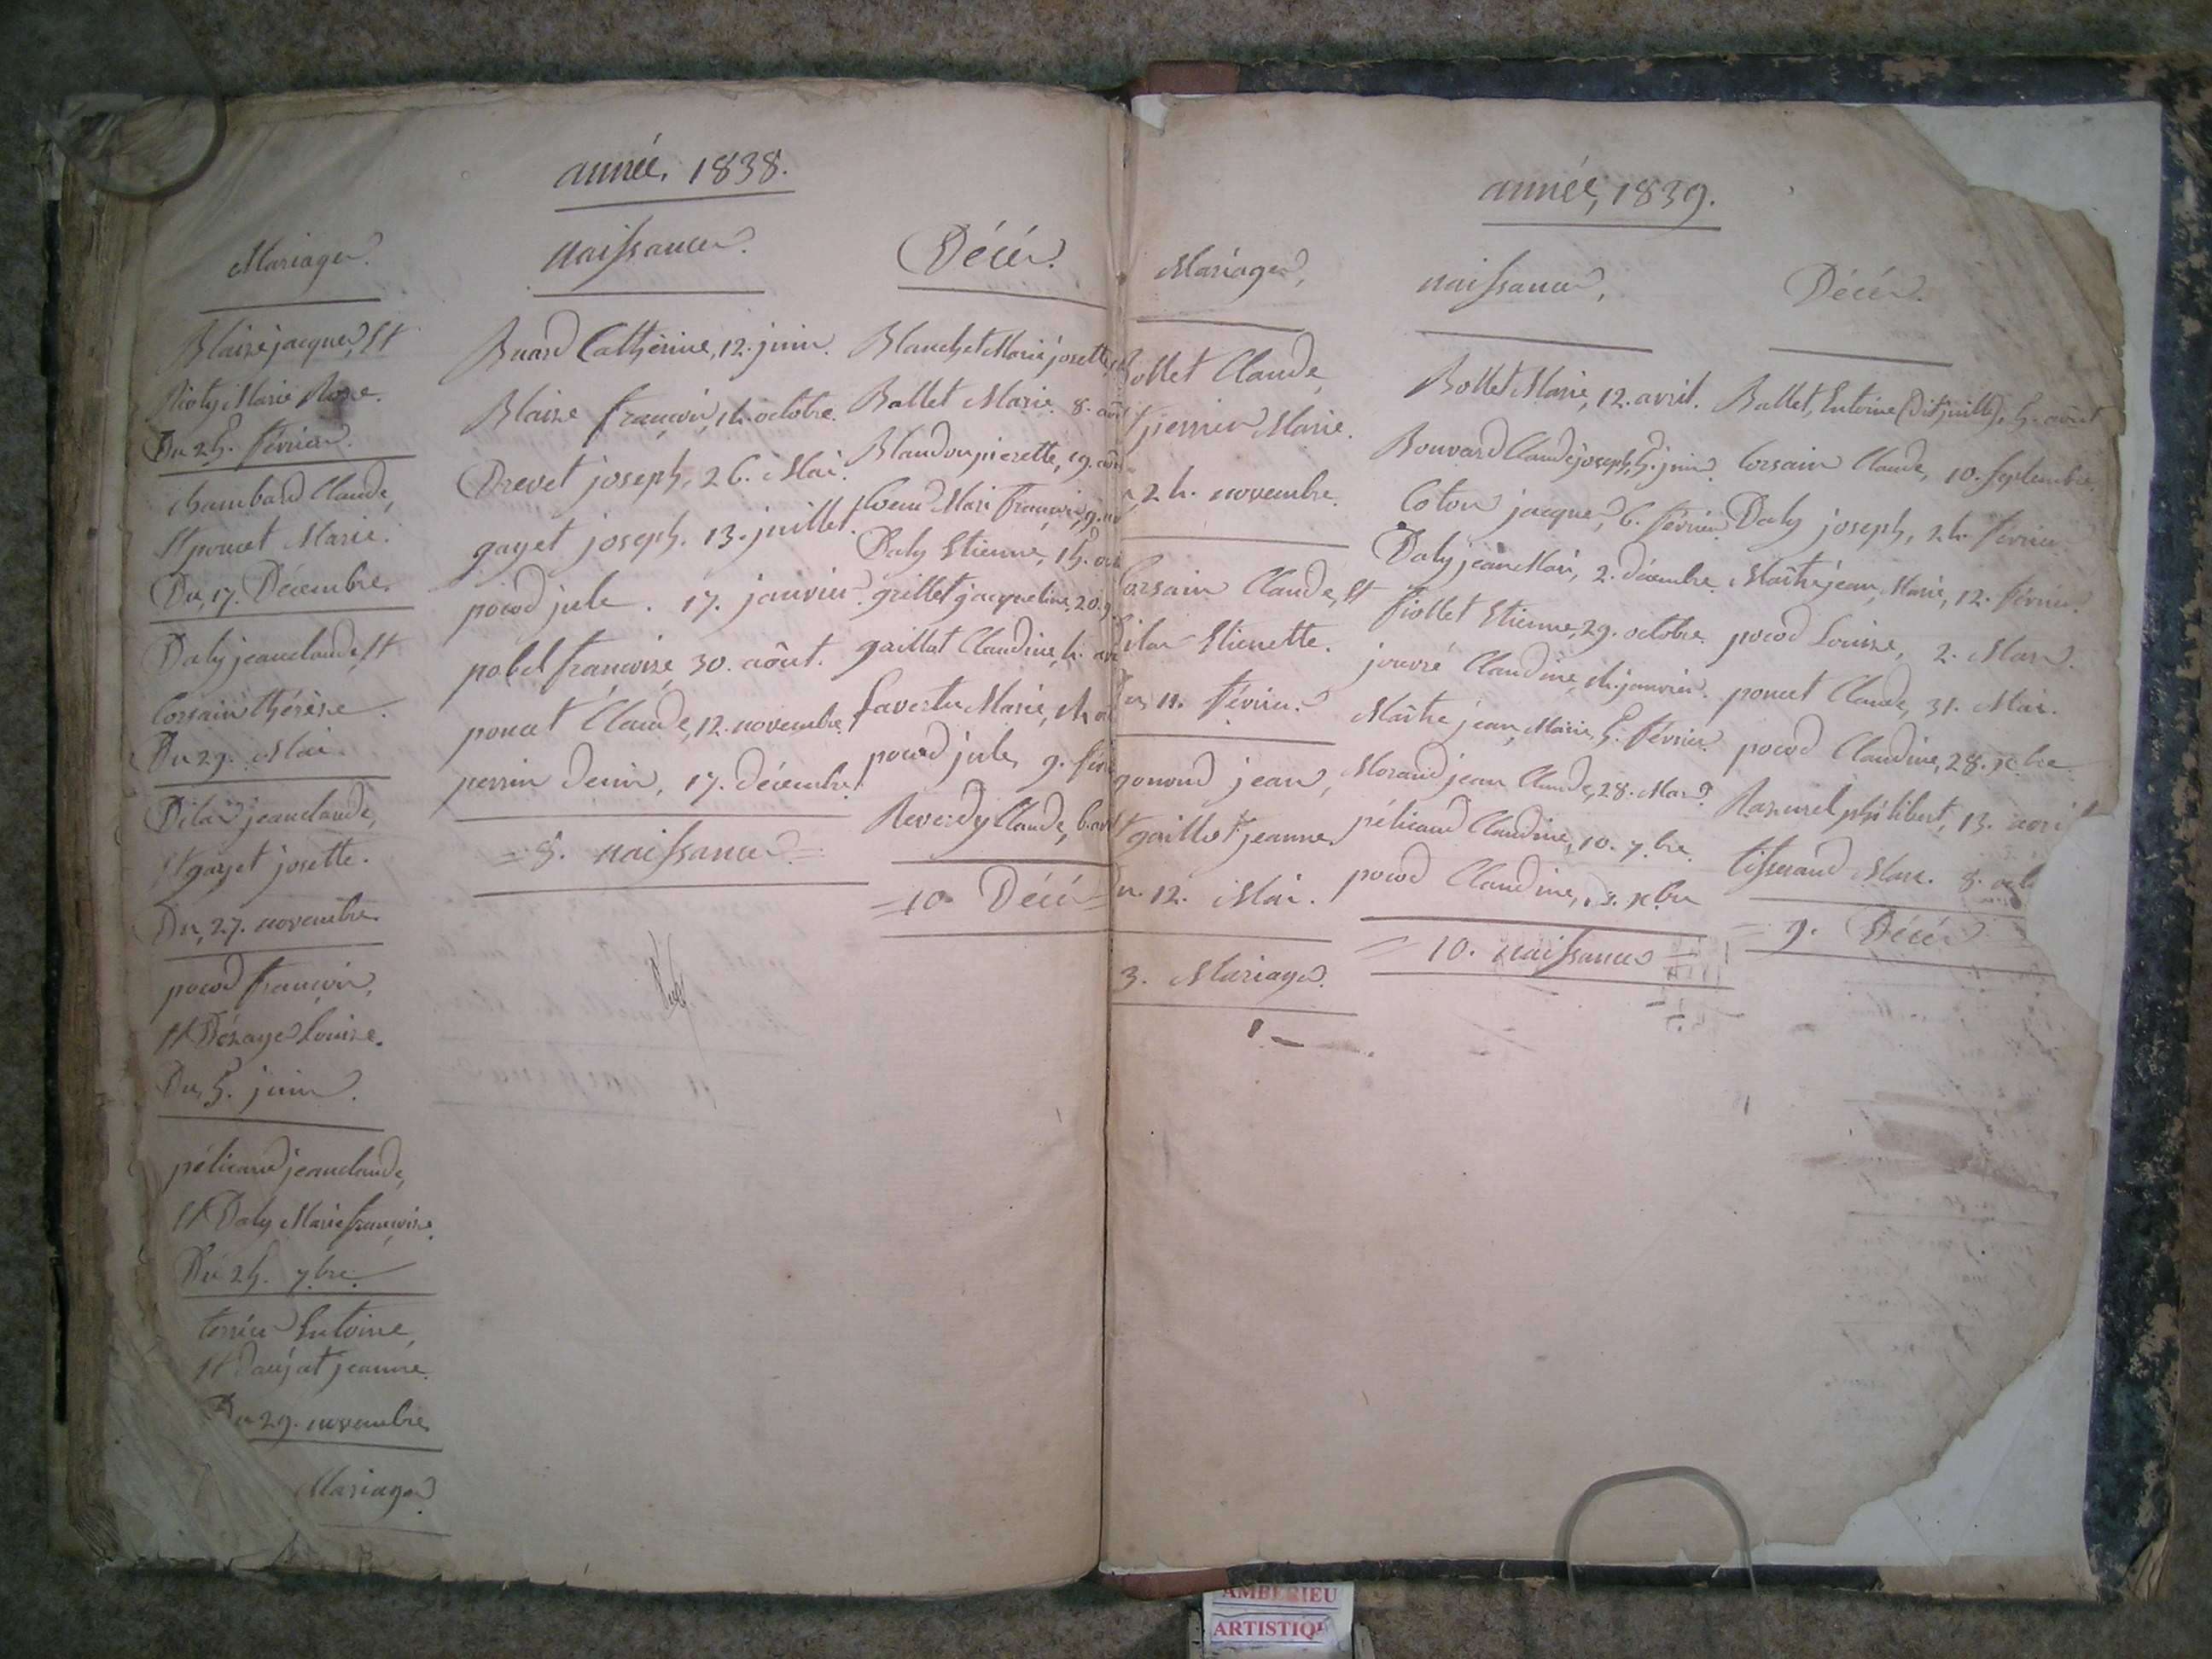 année, 1838.
Mariages.
Blaise jacques, Et
Marie Rose.
Du 25. février.
Chambard Claude,
Et poncet Marie.
Du, 17. Décembre.
Daly jean claude, Et
Corsain thérèse.
Du 29. Mai.
Dilas jean claude,
Et gayet josette.
Du, 27. novembre.
pocod françois,
Et Louise.
Du, 5. juin.
pélicand jean claude,
Et Daly Marie françoise.
Du 25. 7.bre.
Antoine,
Et jeanne.
Du 29. novembre
Mariages
naissances.
Buard Catherine, 12. juin.
Blaise françois, 14. octobre.
Drevet joseph, 26. Mai.
gayet joseph. 13. juillet.
pocod jule. 17. janvier.
pobel françoise, 30. août.
poncet Claude, 12. novembre.
perrin denis, 17. décembre.
= 8. naissances =
Décès.
Blanchet Marie josette,
Ballet Marie. 8.
Blandon pierette, 19.
Marie françois, 9.
Daly Etienne, 15.
grillet jacqueline, 20.
gaillot Claudine, 4.
Lavertu Marie, 14
pocod jules 9.
Reverdy Claude, 6.
= 10. Décès =
année, 1839.
Mariages,
Bollet Claude,
Et perrier Marie.
24. novembre.
Corsain Claude, Et
Dilas Etienette.
Du, 11. février.
gonond jean,
Et gaillot jeanne.
Du. 12. Mai.
3. Mariages.
naissances,
Bollet Marie, 12. avril.
Bouvard Claude joseph, 5. juin.
Coton jacques, 6. février.
Daly jean Marie, 2. décembre.
fiollet Etienne, 29. octobre.
jouvré Claudine, 14. janvier.
Maître jean, Marie, 5. février.
Morand jean Claude, 28. Mars.
pélicand Claudine, 10. 7.bre.
pocod Claudine, 8. Xbre
= 10. naissances =
Décès.
Ballet, Antoine 5. août
Corsain Claude, 10. Septembre.
Daly joseph, 24. février.
Maître jean, Marie, 12. février.
pocod Louise, 2. Mars.
poncet Claude, 31. Mai.
pocod Claudine, 28. Xbre
Rasurel philibert, 13. avril
tisserand Marc. 8.
= 9. Décès
AMBERIEU
ARTISTIQ